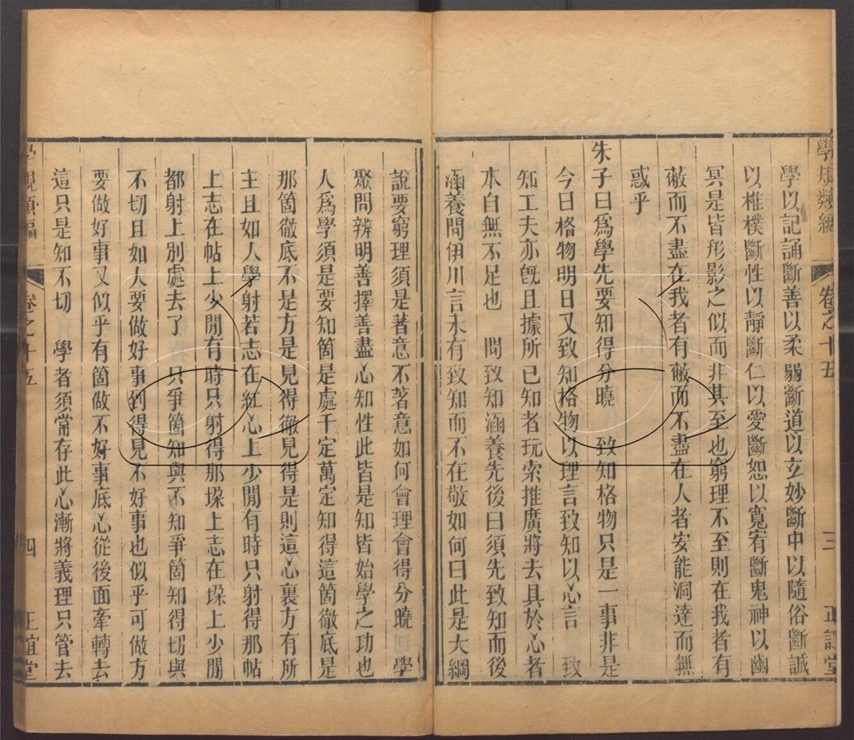 學規類編 卷之十五 三 正誼堂
學以記誦斷善以柔弱斷道以玄妙斷中以隨俗斷誠
以椎樸斷性以靜斷仁以愛斷恕以寬宥斷鬼神以幽
冥是皆形影之似而非其至也窮理不至則在我者有
蔽而不盡在我者有蔽而不盡在人者安能洞達而無
惑乎
朱子曰爲學先要知得分曉 致知格物只是一事非是
今日格物明日又致知格物以理言致知以心言 致
知工夫亦旣且據所已知者玩索推廣將去具於心者
本自無不足也 問致知涵養先後曰須先致知而後
涵養問伊川言未有致知而不在敬如何曰此是大綱
說要窮理須是著意不著意如何會理會得分曉 學
聚問辨明善擇善盡心知性此皆是知皆始學之功也
人爲學須是要知箇是處千定萬定知得這箇徹底是
那箇徹底不是方是見得徹見得是則這心裏方有所
主且如人學射若志在紅心上少閒有時只射得那帖
上志在帖上少閒有時只射得那垜上志在垜上少閒
都射上別處去了 只爭箇知與不知爭箇知得切與
不切且如人要做好事到得見不好事也似乎可做方
要做好事又似乎有箇做不好事底心從後面牽轉去
這只是知不切 學者須常存此心漸將義理只管去
學規類編 卷之十五 四 正誼堂